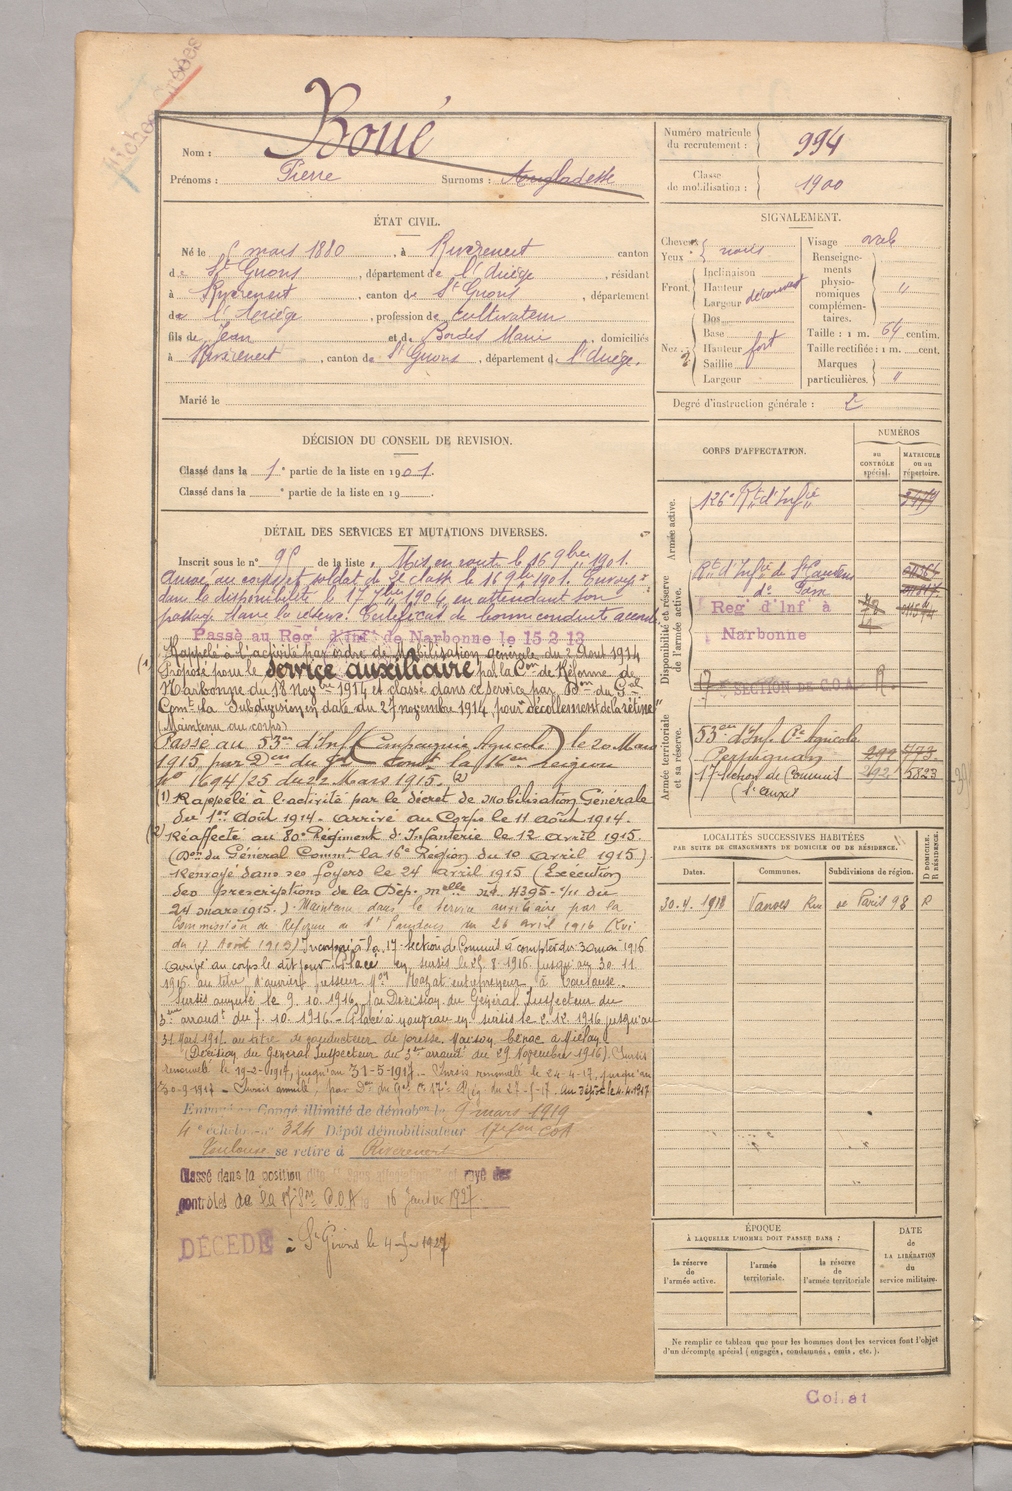 Fiches
Boué
Nom :
Prénoms : Pierre Surnoms : Angladette
Numéro matricule du recrutement : 994
Classe de mobilisation : 1900
ÉTAT CIVIL.
Né le mars 1880, à Rivèrenert canton
de St Girons, département de l'Ariège, résidant
à Rivèrenert, canton de St Girons, département
de l'Ariège, profession de Cultivateur
fils de Jean et de Bordes Marie, domiciliés
à Rivèrenert, canton de St Girons, département de l'Ariège.
Marié le
SIGNALEMENT.
Cheveux
Yeux noirs
Front. Inclinaison
Hauteur
Largeur découvert
Nez. Dos
Base
Hauteur fort
Saillie
Largeur
Visage oval
Renseignements physionomiques complémentaires. "
Taille : 1 m. 64 centim.
Taille rectifiée : 1 m. cent.
Marques particulières. "
Degré d'instruction générale : 2
DÉCISION DU CONSEIL DE REVISION.
Classé dans la 1e partie de la liste en 1901.
Classé dans la e partie de la liste en 19
DÉTAIL DES SERVICES ET MUTATIONS DIVERSES.
Inscrit sous le n° 95 de la liste. Mis en route le 16 9bre 1901.
Arrivé au corps et soldat de 2e classe le 16 9bre 1901. Envoyé
dans la disponibilité le 17 7bre 1904 en attendant son
passage dans la réserve. Certificat de bonne conduite accordé
Passé au Reg d'Inf de Narbonne le 15 2 13
(1) Rappelé à l'activité par ordre de Mobilisation générale du 2 Août 1914
Proposé pour le service auxiliaire par la Con de Réforme de
Narbonne du 18 Novbre 1914 et classé dans ce service par Don du Gal
Comt la Subdivision en date du 27 novembre 1914, pour "décollement de la rétine"
(Maintenu au corps)
Passé au 53en d'Inf (Compagnie Agricole) le 20 Mars
1915 par Don du Gl Comdt la 16en Région
No 1694/25 du 22 Mars 1915. (2)
(1) Rappelé à l'activité par le décret de Mobilisation Générale
du 1er Août 1914. arrivé au Corps le 11 août 1914.
(2) Réaffecté au 80e Régiment d'Infanterie le 12 avril 1915.
(Don du Général Commt la 16e Région du 10 avril 1915).
Renvoyé dans ses foyers le 24 avril 1915 (Exécution
des prescriptions de la Dép. melle No 4395-4/11 du
24 mars 1915.) Maintenu dans le service auxiliaire par la
Commission de Réforme de St Gaudens du 26 Avril 1916 (Loi
du 17 Août 1915) Incorporé à la 17e Section de Commis à compter du 30 mai 1916
arrivé au corps le dit jour. Placé en sursis le 25.8.1916 jusqu'au 30.11
1916 au titre d'ouvrier presseur Mon Mazat entrepreneur à Toulouse.
Sursis annulé le 9.10.1916 par Décision du Général Inspecteur du
3ème arrondt du 7.10.1916. - Placé à nouveau en sursis le 2.12.1916 jusqu'au
31 Mars 1917 au titre de conducteur de presse. Maison Bénac à Miélan
(Décision du Général Inspecteur du 3me arrondt du 29 Novembre 1916). Sursis
renouvelé le 19-2-1917, jusqu'au 31-5-1917 - Sursis renouvelé le 24-4-17, jusqu'au
30-9-1917 - Sursis annulé, par Don du Gal Ct 17e Rég du 27-5-17.
Envoyé en Congé illimité de démobon le 9 mars 1919
4e échelon no 324 Dépôt démobilisateur 17e Son COA
Toulouse se retire à Rivèrenert
Classé dans la position dite rayé des
contrôles de la 17e Son C.O.A. 16 Janvier 1927
DÉCÉDÉ à St Girons le 1927
CORPS D'AFFECTATION.
NUMÉROS
au CONTRÔLE spécial.
MATRICULE ou au répertoire.
Armée active.
126e Rt d'Infie
Disponibilité et réserve de l'armée active.
Rt d'Infie de St Gaudens
do
Reg d'Inf à
Narbonne
17e SECTION DE C.O.A. R.
Armée territoriale et sa réserve.
53en d'Inf. Cie Agricole
Perpignan 299 473
17e Section de Commis 292 5823
(S. auxil
LOCALITÉS SUCCESSIVES HABITÉES
PAR SUITE DE CHANGEMENTS DE DOMICILE OU DE RÉSIDENCE.
Dates. Communes. Subdivisions de région. D DOMICILE. R RÉSIDENCE.
Vanves Rue de Paris 98 R
ÉPOQUE
À LAQUELLE L'HOMME DOIT PASSER DANS :
la réserve de l'armée active.
l'armée territoriale.
la réserve de l'armée territoriale
DATE de LA LIBÉRATION du service militaire.
Ne remplir ce tableau que pour les hommes dont les services font l'objet
d'un décompte spécial (engagés, condamnés, omis, etc.).